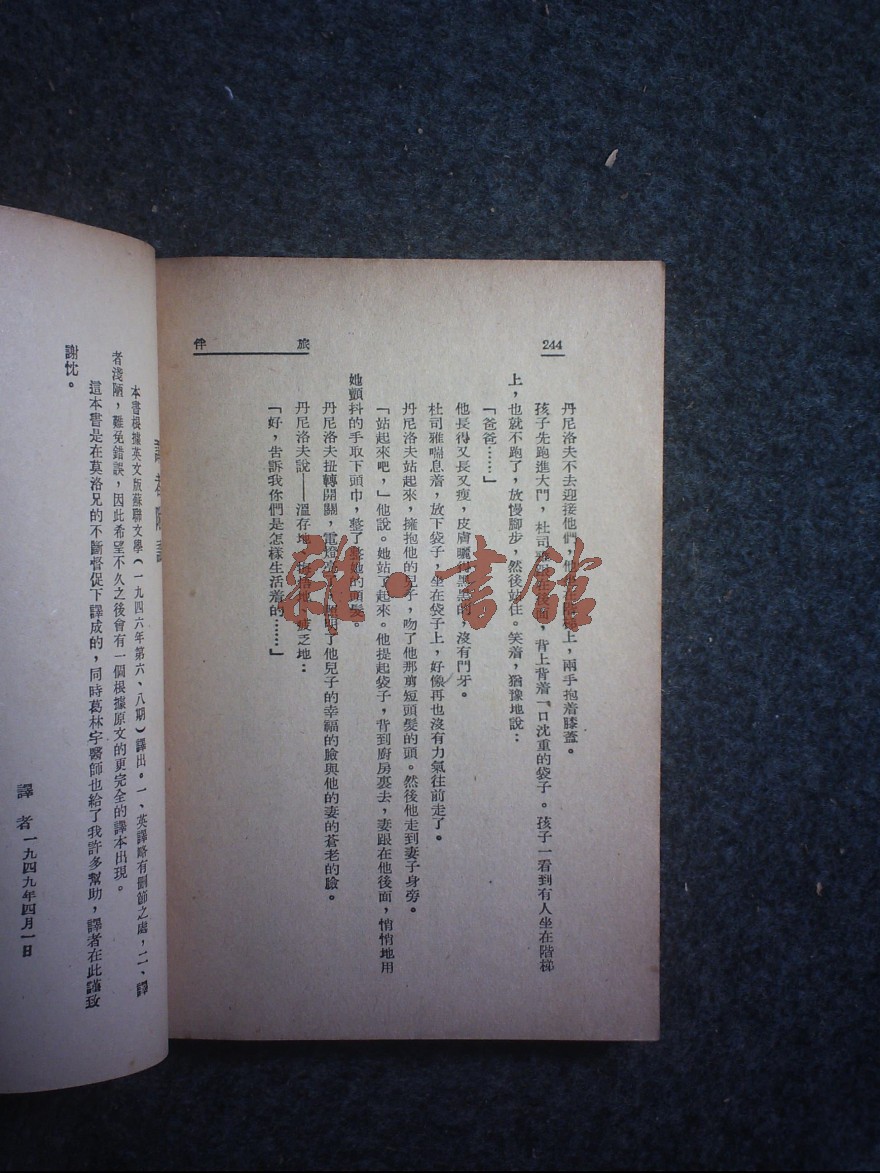 244
旅伴
丹尼洛夫不去迎接他們,他坐在階梯上,兩手抱着膝蓋。
孩子先跑進大門,杜司雅 背上背着一口沈重的袋子。孩子一看到有人坐在階梯
上,也就不跑了,放慢脚步,然後站住。笑着,猶豫地說:
「爸爸……」
他長得又長又瘦,皮膚曬得黑黑的,沒有門牙。
杜司雅喘息着,放下袋子,坐在袋子上,好像再也沒有力氣往前走了。
丹尼洛夫站起來,擁抱他的兒子,吻了他那剪短頭髮的頭。然後他走到妻子身旁。
「站起來吧,」他說。她站了起來。他提起袋子,背到廚房裏去,妻跟在他後面,悄悄地用
她顫抖的手取下頭巾,整了整她的頭髮。
丹尼洛夫扭轉開關,電燈亮了,照明了他兒子的幸福的臉與他的妻的蒼老的臉。
丹尼洛夫說——溫存地, 疲乏地:
「好,告訴我你們是怎樣生活着的……」
本書根據英文版蘇聯文學(一九四六年第六、八期)譯出。一、英譯略有刪節之處,二、譯
者淺陋,難免錯誤,因此希望不久之後會有一個根據原文的更完全的譯本出現。
這本書是在莫洛兄的不斷督促下譯成的,同時葛林宇醫師也給了我許多幫助,譯者在此謹致
謝忱。
譯者 一九四九年四月一日
雜·書館